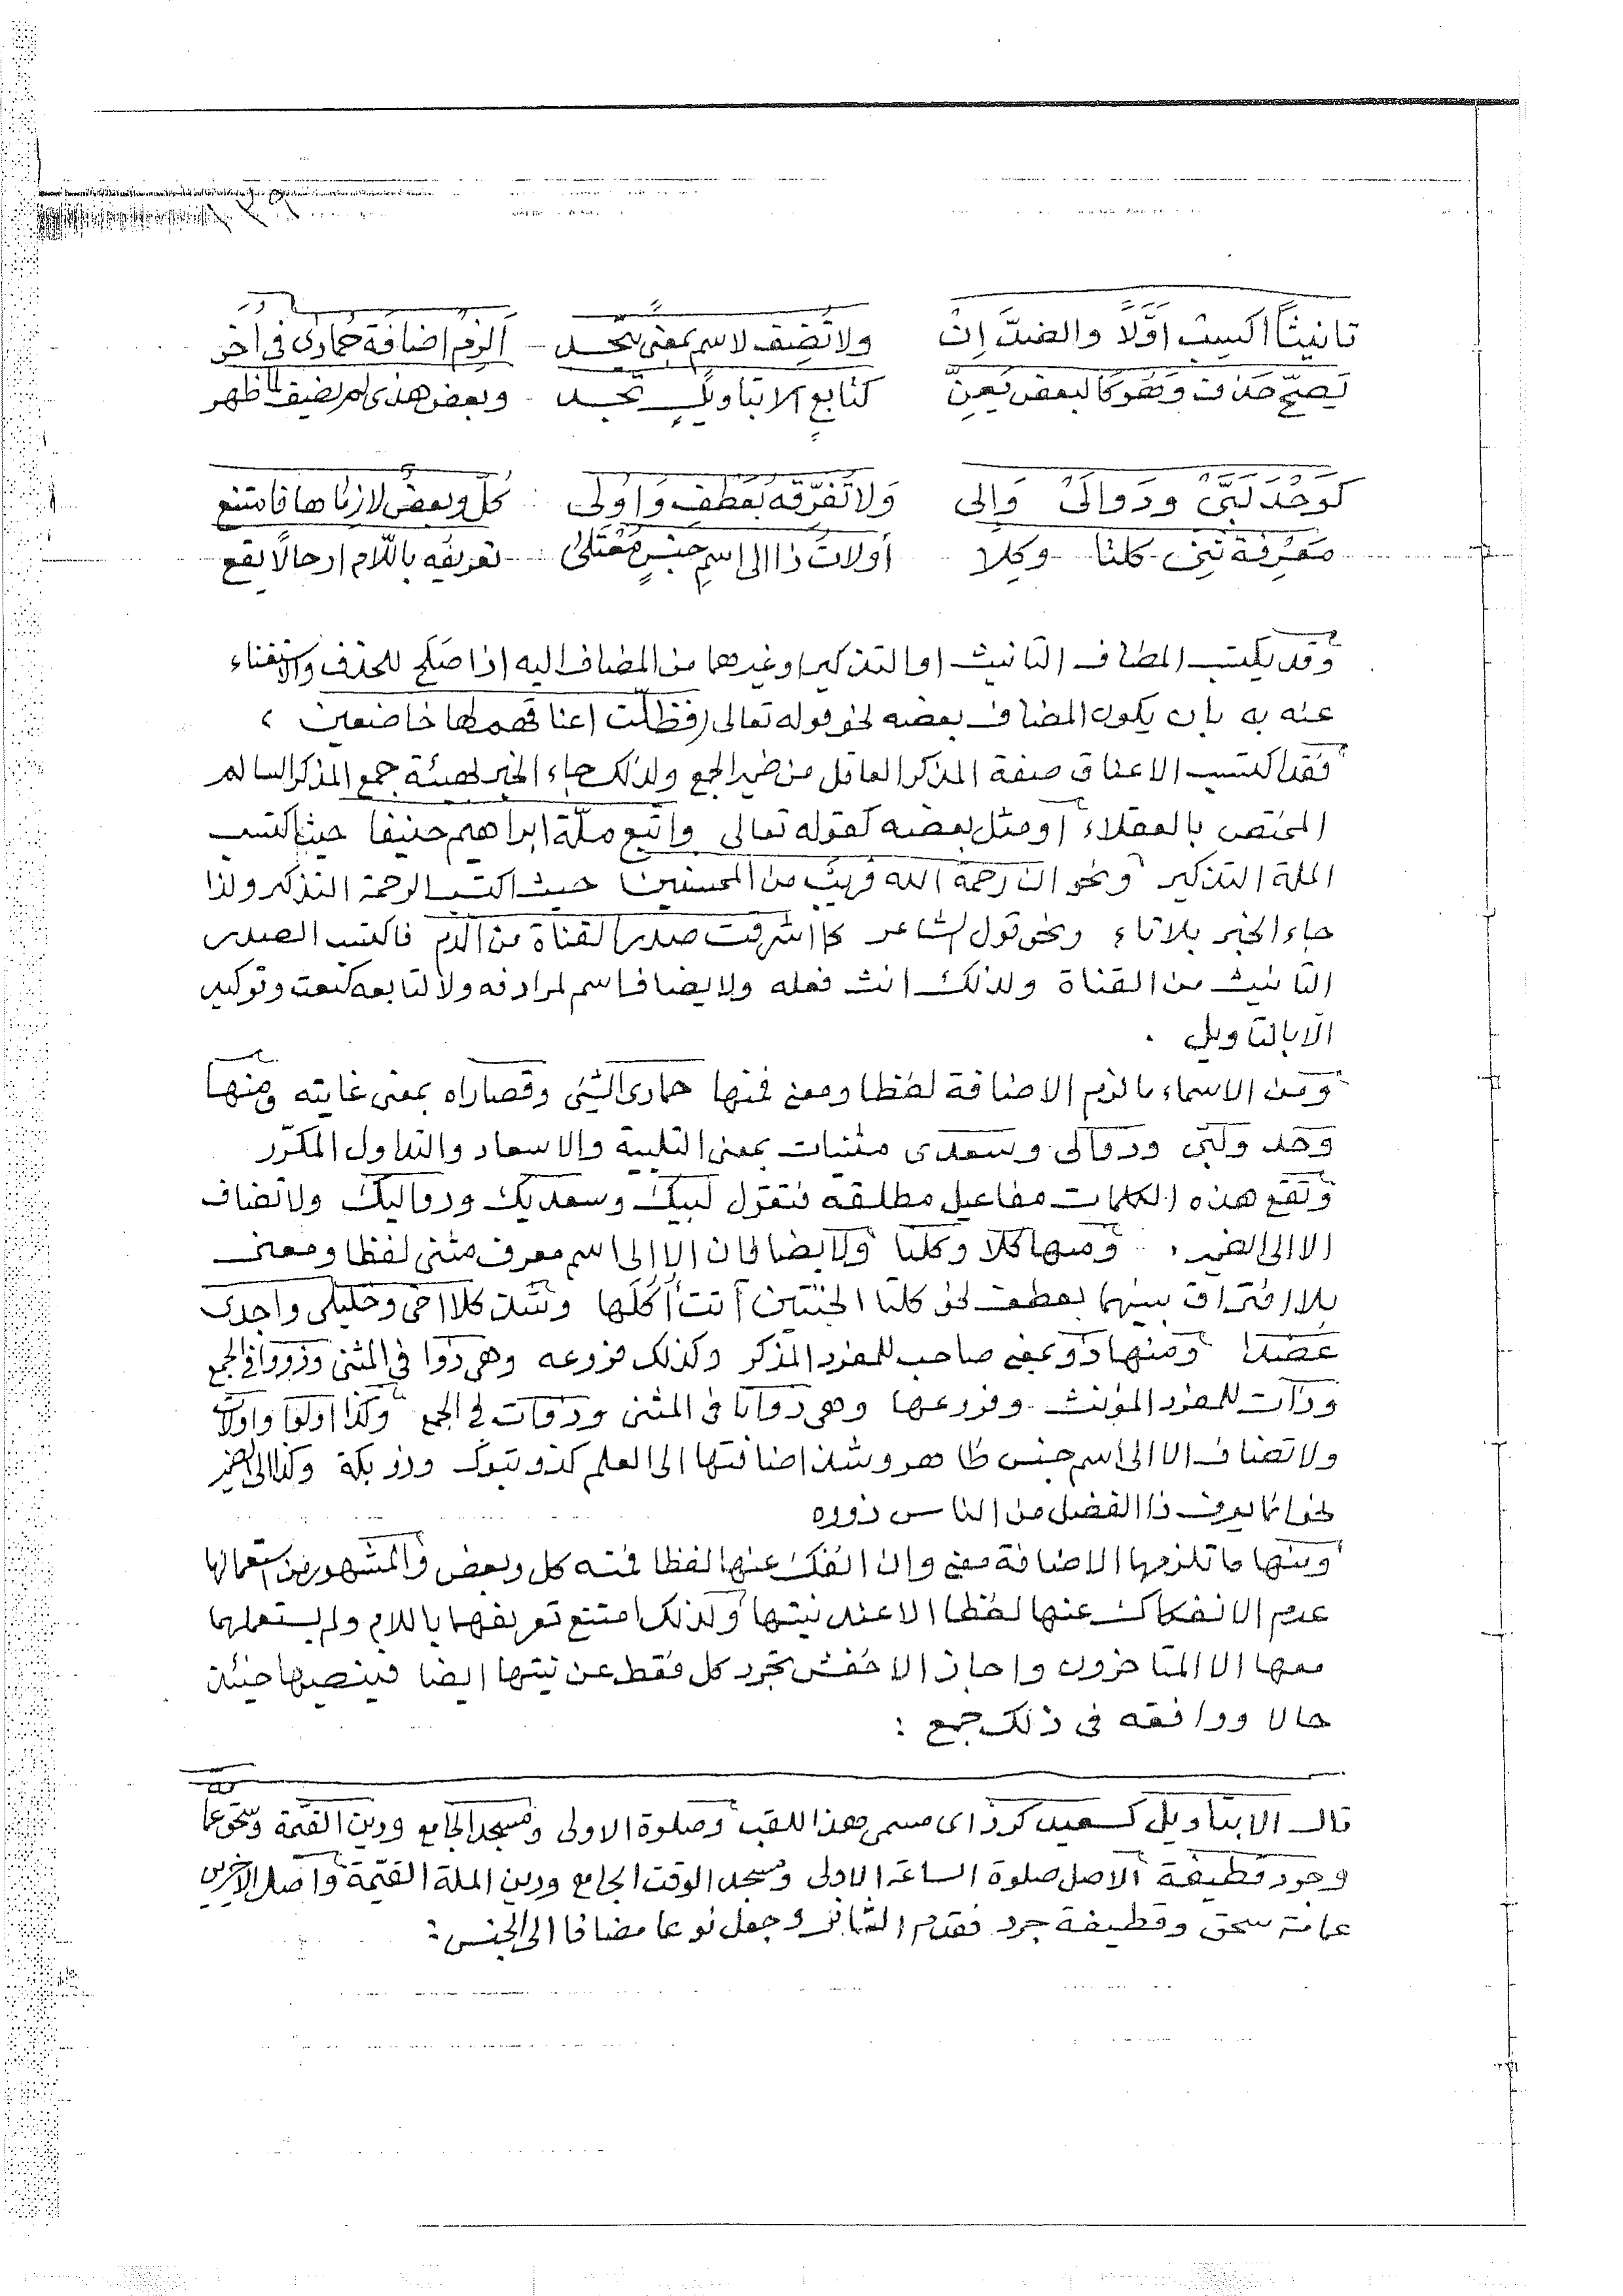 تانيثًا اكسبت اوّلًا والضدَّ اِنْ ولا تُضِف لاسم بمعنى يتّحد الزم اضافة حمادى فى اُخَر
يَصِحّ حذف وَهُو كالبعض يَعِنّ كتابع الا بتاويلٍ تجد وبعض هذى لم تضيف لما ظهر
كوَحْدَ لَبَّىْ ودَوالَىْ وَالِى وَلا تُفَرّقه بعطف وَاُولى كُلّ وبعضٌ لازماها فامتنع
مَعرِفة ثنى كلتا وكِلا أولاتُ ذا الى اسمِ جنسٍ مُعْتَلىٰ تعريفه باللام او حالًا يقع
وقد يكتسب المضاف التانيث او التذكير او غيرهما من المضاف اليه اذا صَلح للحذف والاستغناء
عنه به بان يكون المضاف بعضه نحو قوله تعالى (فظلّت اعناقهم لها خاضعين ،
فقد اكتسب الاعناق صفة المذكر العاقل من ضمير الجمع ولذلك جاء الخبر لهيئة جمع المذكر السالم
المختص بالعقلاء او مثل بعضه كقوله تعالى واتّبع ملّة ابراهيم حنيفا حيث اكتسب
الملة التذكير ونحو ان رحمة الله قريب من المحسنين حيث اكتسب الرحمة التذكير ولذا
جاء الخبر بلا تاء ونحو قول الشاعر كما اشرقت صدر القناة من الدم فاكتسب الصدر
التانيث من القناة ولذلك انث فعله ولا يضاف اسم لمرادفه ولا لتابعه كنعت وتوكيد
الّا بالتاويل .
ومن الاسماء ما لزم الاضافة لفظا ومعنى فمنها حمادى الشيئ وقصاراه بمعنى غايته ومنها
وحد ولبّى ودوالى وسعدى مثنيات بمعنى التلبية والاسعاد والتداول المكرّر
وتقع هذه الكلمات مفاعيل مطلقه فتقول لبيك وسعديك ودواليك ولا تضاف
الا الى الضمير، ومنها كلا وكلتا ولا يضافان الا الى اسم معرف مثنى لفظا ومعنى
بلا افتراق بينهما بعطف نحو كلتا الجنّتين آتت اُكُلَها وشذ كلا اخى وخليلى واجدى
عضدا ومنها ذو بمعنى صاحب للمفرد المذكر وكذلك فروعه وهى ذوا فى المثنى وذووا فى الجمع
وذات للمفرد المؤنث وفروعها وهى ذواتا فى المثنى وذوات فى الجمع وكذا اولوا واولات
ولا تضاف الا الى اسم جنس ظاهر وشذ اضافتها الى العلم كذو تبوك وذو بكة وكذا الى الضمير
نحو انما يعرف ذا الفضل من الناس ذووه
ومنها ما تلزمها الاضافة معنى وان انفك عنها لفظا فمنه كل وبعض والمشهور من استعمالها
عدم الانفكاك عنها لفظا الا عند نيتها ولذلك امتنع تعريفهما باللام ولم يستعملهما
معها الا المتاخرون واجاز الاخفش تجرد كل فقط عن نيتها ايضا فينصبها حينئذ
حالا ووافقه فى ذلك جمع :
قال الا بتاويل كسعيد كرز اى مسمى بهذا اللقب وصلوة الاولى ومسجد الجامع ودين القيّمة وسحق عما
وجرد قطيفة الاصل صلوة الساعة الاولى ومسجد الوقت الجامع ودين الملة القيّمة واصل الاخيرين
عمامة سحق وقطيفة جرد فقدم الثانى وجعل نوعا مضافا الى الجنس :